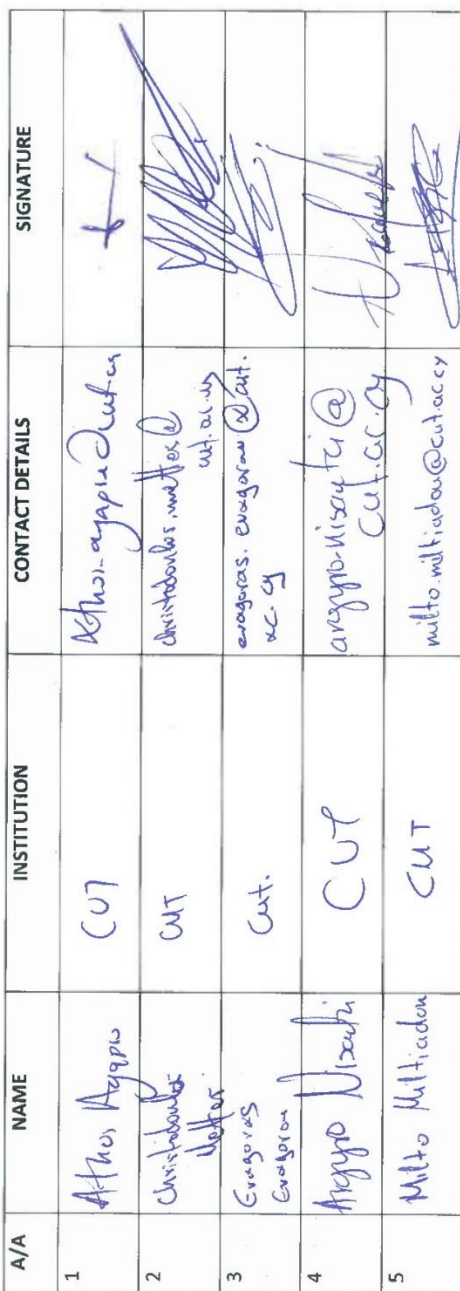 A/A NAME INSTITUTION CONTACT DETAILS SIGNATURE
1 Athos Agapiou CUT
2 Christodoulos Mettas CUT christodoulos.mettas@
cut.ac.cy
3 Evagoras
Evagorou Cut. evagoras.evagorou@cut.
ac.cy
4 Argyro Nisantzi CUT argyro.nisantzi@
cut.ac.cy
5 Milto Miltiadou CUT milto.miltiadou@cut.ac.cy